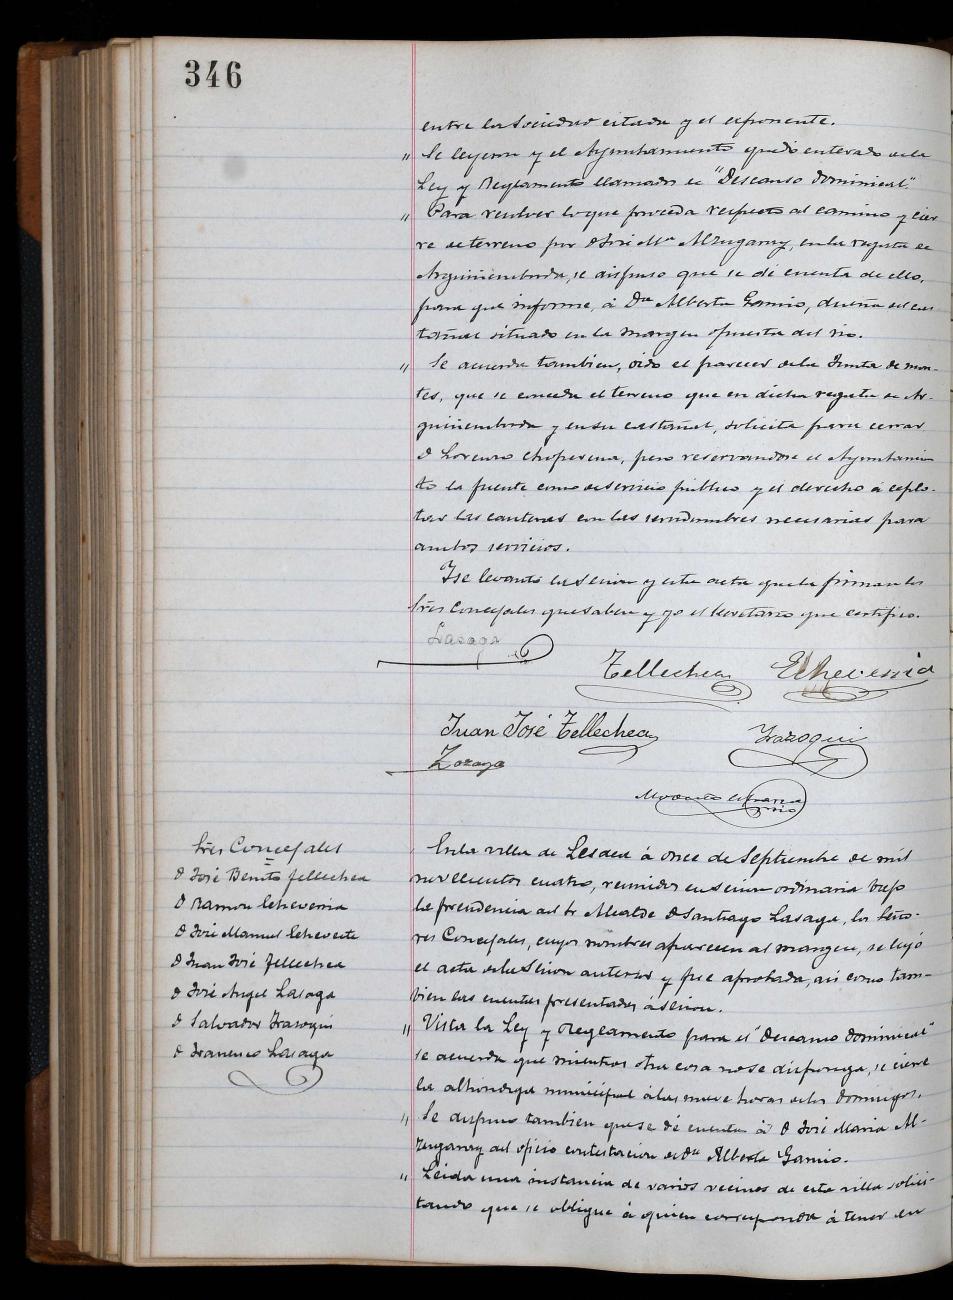 346
entre la Sociedad citada y el exponente.
" Se leyeron y el Ayuntamiento quedó enterado de la
Ley y Reglamento llamados de "Descanso dominical".
" Para resolver lo que proceda respecto al camino y cier-
re de terreno por D José Mª Alzugaray, en la regata de
se dispuso que se dé cuenta de ello,
para que informe, á Dª Alberta Gamio, dueña del cas-
tañal situado en la margen opuesta del rio.
" Se acuerda tambien, oido el parecer de la Junta de mon-
tes, que se conceda el terreno que en dicha regata de Ar-
y en su castañal, solicita para cerrar
D Lorenzo pero reservandose el Ayuntamien
to la fuente como de servicio público y el derecho á esplo-
tar las canteras con las servidumbres necesarias para
ambos servicios.
Y se levantó la Sesion y esta acta que la firman los
Sres Concejales que saben y yo el Secretario que certifico.
Lasaga
Tellechea Echeverria
Juan José Tellechea Irazoqui
Zozaya
Sres Concejales
D José Benito Tellechea
D Ramon Echeverria
D José Manuel Echeveste
D Juan José Tellechea
D José Angel Lasaga
D Salvador Irazoqui
D Francisco Lasaga
En la villa de Lesaca á once de Septiembre de mil
novecientos cuatro, reunidos en sesion ordinaria bajo
la presidencia del Sr Alcalde D Santiago Lasaga, los Seño-
res Concejales, cuyos nombres aparecen al margen, se leyó
el acta de la Sesion anterior y fue aprobada, asi como tam-
bien las cuentas presentadas á sesion.
" Vista la Ley y Reglamento para el "Descanso dominical"
se acuerda que mientras otra cosa no se disponga, se cierre
la alhondiga municipal á las nueve horas de los domingos.
" Se dispuso tambien que se dé cuenta á D José Maria Al-
zugaray del oficio contestacion de Dª Alberta Gamio.
" Leida una instancia de varios vecinos de esta villa solici-
tando que se obligue á quien corresponda á tener en